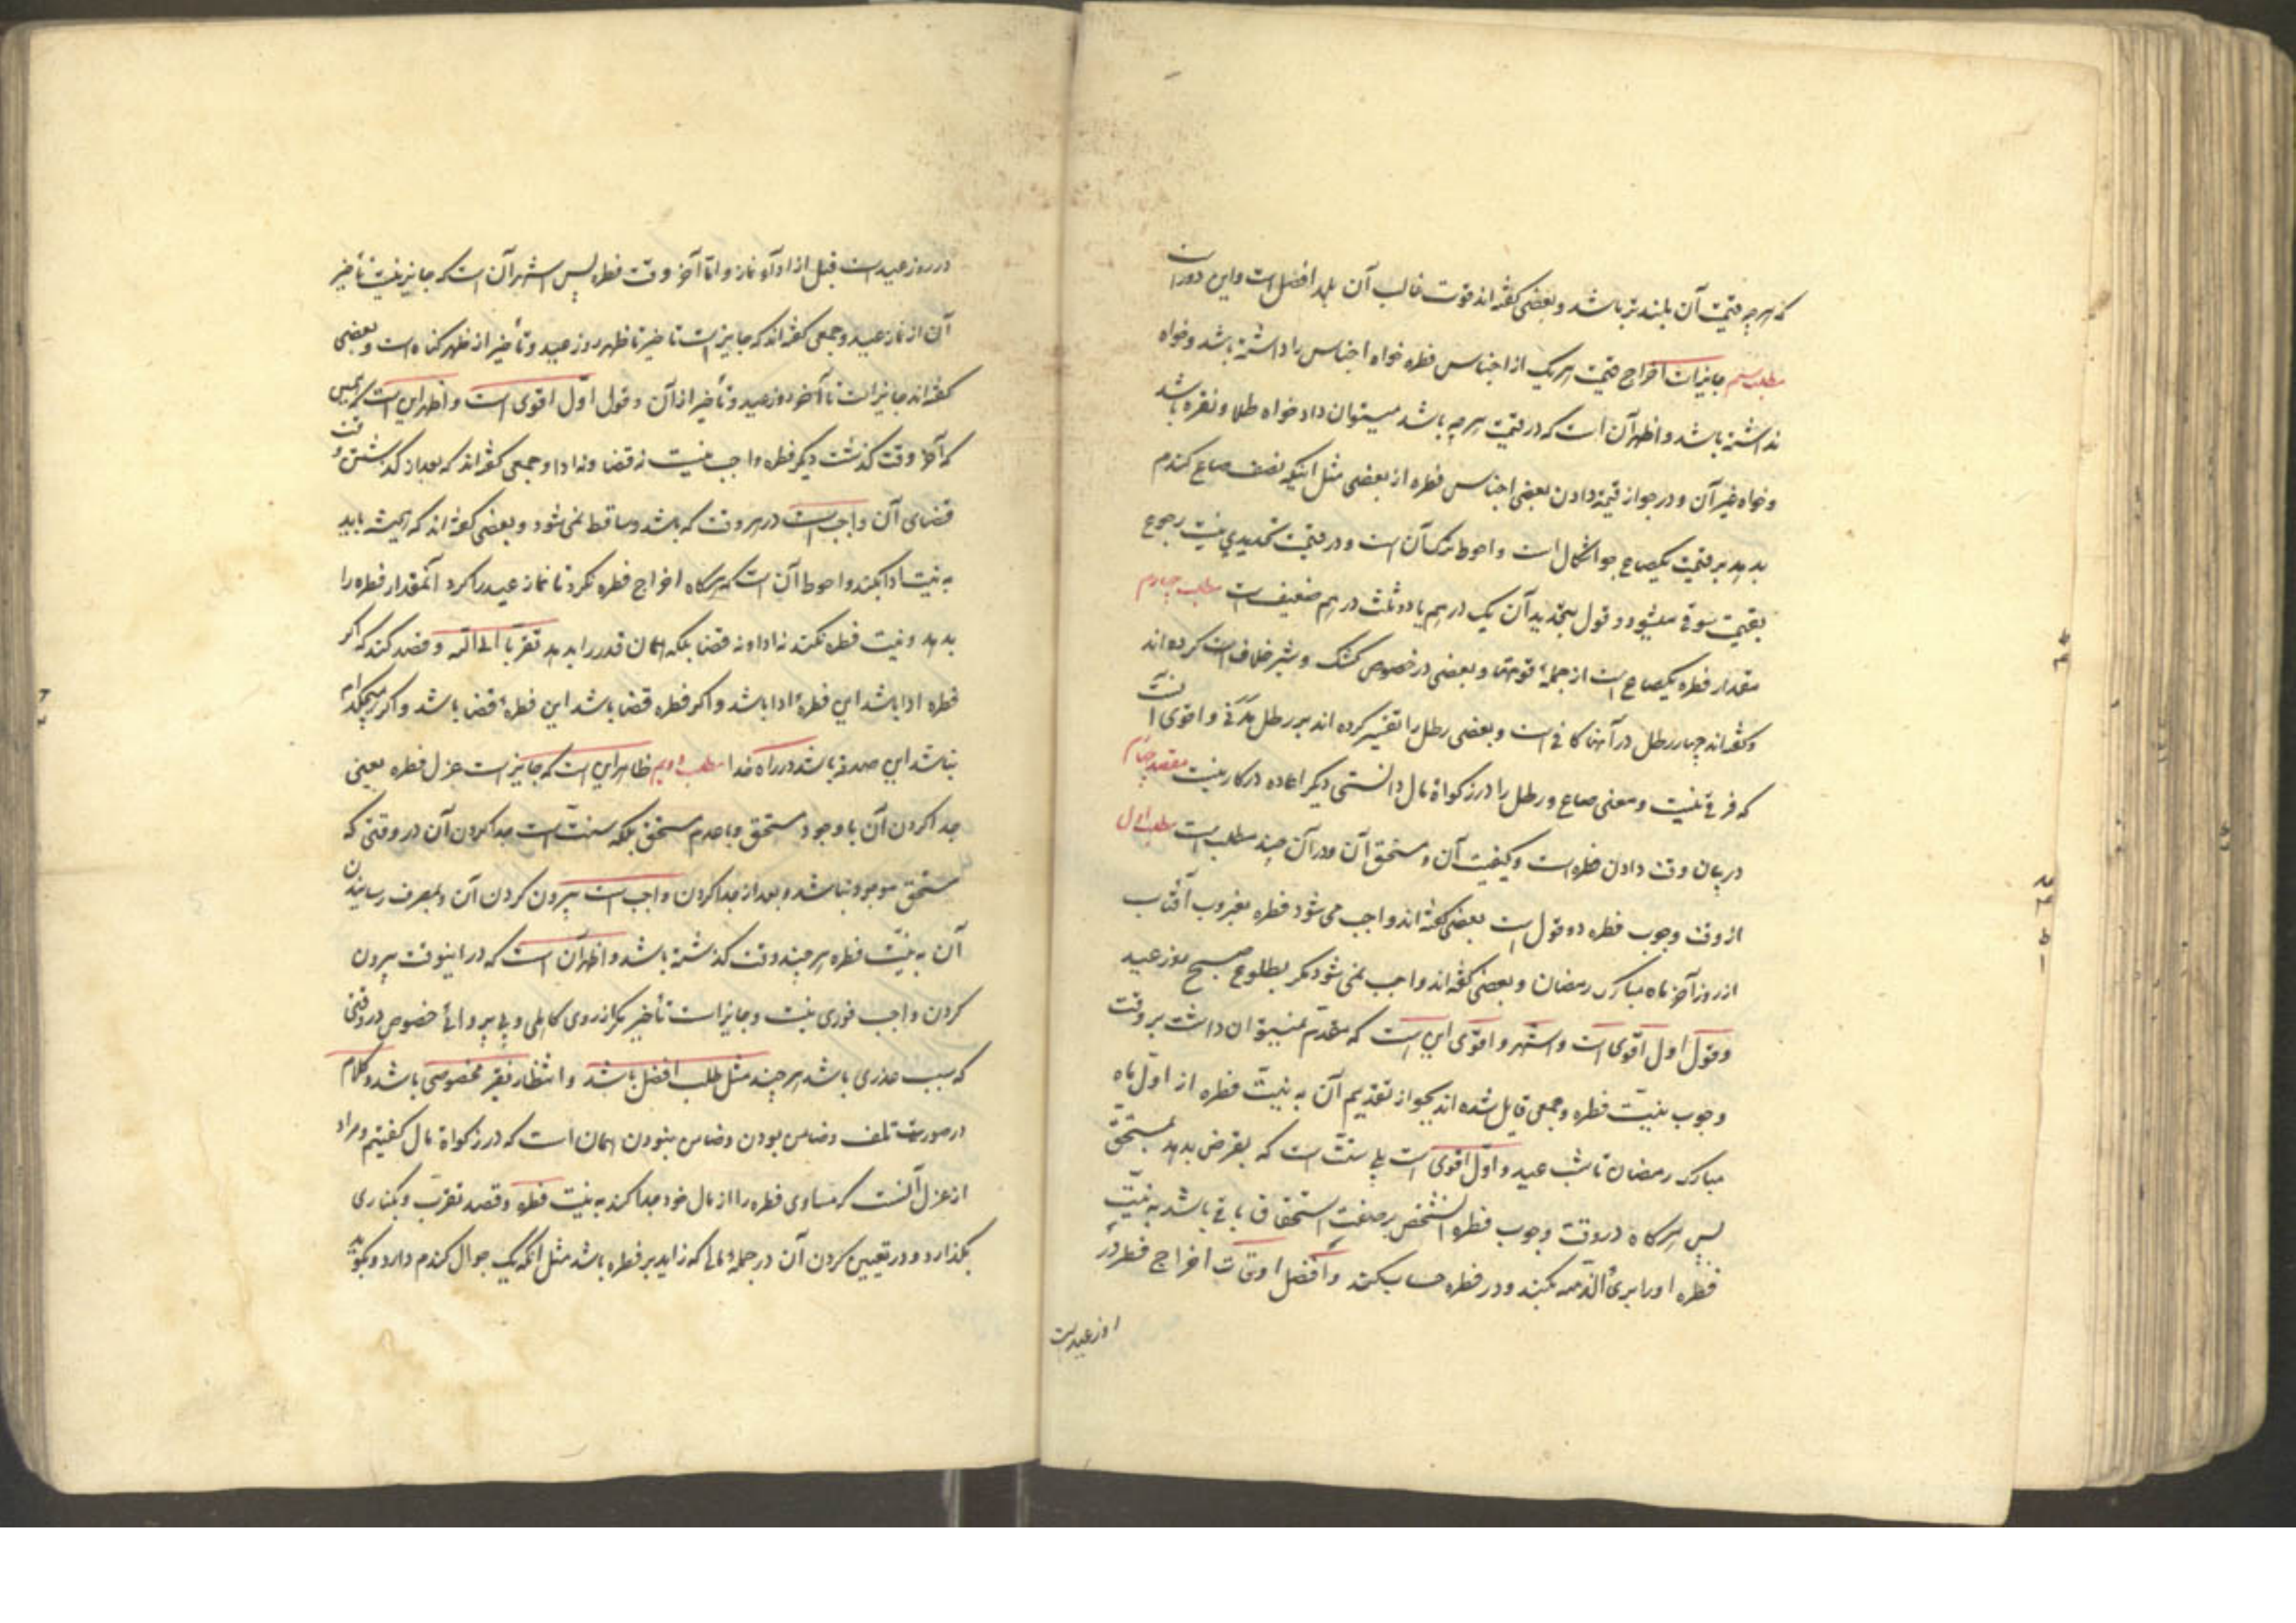 که هرچه قیمت آن بلندتر باشد و بعضی گفته‌اند قوت غالب آن بلد افضل است و این دور است
مطلب سیم جایز است اخراج قیمت هر یک از اجناس فطره خواه اجناس را داشته باشد و خواه
نداشته باشد و اظهر آن است که در قیمت هرچه باشد میتوان داد خواه طلا و نقره باشد
و خواه غیر آن و در جواز قیمة دادن بعضی اجناس فطره از بعضی مثل اینکه نصف صاع گندم
بدهد بر قیمت یکصاع جو اشکال است و احوط ترک آن است و در قیمت تحدیدی نیست رجوع
بقیمت سوقی میشود و قول بتحدید آن یک درهم یا دو ثلث درهم ضعیف است مطلب چهارم
مقدار فطره یکصاع است از جمله قوتها و بعضی در خصوص کشک و شیر خلاف است کرده‌اند
و گفته‌اند چهار رطل در آنها کافی است و بعضی رطل را تفسیر کرده اند بر رطل مدنی و اقوی آنست
که فرقی نیست و معنی صاع و رطل را در زکواة مال دانستی دیگر اعاده در کار نیست مقصد چهارم
در بیان وقت دادن فطره است و کیفیت آن و مستحق آن و در آن چند مطلب است مطلب اول
از وقت وجوب فطره دو قول است بعضی گفته‌اند واجب می‌شود فطره بغروب آفتاب
از روز آخر ماه مبارک رمضان و بعضی گفته‌اند واجب نمی‌شود مگر بطلوع صبح روز عید
و قول اول اقوی است و اشهر و اقوی این است که مقدم نمیتوان داشت بر وقت
وجوب بنیت فطره و جمعی قایل شده اند بجواز تقدیم آن به نیت فطره از اول ماه
مبارک رمضان تا شب عید و اول اقوی است بلی سنت است که بقرض بدهد بمستحق
پس هرگاه در وقت وجوب فطره آنشخص بر صفت استحقاق باقی باشد به نیت
فطره او را بری‌ء الذمه بکند و در فطره حساب کند و افضل اوقات اخراج فطره در
روز عید است
در روز عید است قبل از ادآء نماز و اما آخر وقت فطره پس اشهر آن است که جایز نیست تأخیر
آن از نماز عید و جمعی گفته‌اند که جایز است تاخیر تا ظهر روز عید و تأخیر از ظهر گناه است و بعضی
گفته‌اند جایز است تا آخر روز عید و تأخیر از آن و قول اول اقوی است و اظهر این است که همین
که آخر وقت گذشت دیگر فطره واجب نیست نه قضا و نه ادا و جمعی گفته‌اند که بعد از گذشتن وقت
قضای آن واجب است در هر وقت که باشد و ساقط نمی‌شود و بعضی گفته‌اند که همیشه باید
به نیت ادا بکند و احوط آن است که هرگاه اخراج فطره نکرد تا نماز عید را کرد آنمقدار فطره را
بدهد و نیت فطره نکند نه ادا و نه قضا بلکه همان قدر را بدهد تقربا الی الله و قصد کند که اگر
فطره ادا باشد این فطرهٔ ادا باشد و اگر فطره قضا باشد این فطرهٔ قضا باشد و اگر هیچکدام
نباشد این صدقه باشد در راه خدا مطلب دویم ظاهر این است که جایز است عزل فطره یعنی
جدا کردن آن با وجود مستحق و با عدم مستحق بلکه سنت است جدا کردن آن در وقتی که
مستحق موجود نباشد و بعد از جدا کردن واجب است بیرون کردن آن و بمصرف رسانیدن
آن به نیت فطره هر چند وقت گذشته باشد و اظهر آن است که در اینوقت بیرون
کردن واجب فوری نیست و جایز است تأخیر مگر از روی کاهلی و بی پروائی خصوص در وقتی
که سبب عذری باشد هر چند مثل طلب افضل باشد و انتظار فقیر مخصوصی باشد و کلام
در صورت تلف و ضامن بودن و ضامن نبودن همان است که در زکواة مال گفتیم و مراد
از عزل آنست که مساوی فطره را از مال خود جدا کند به نیت فطره و قصد تقرب و بکناری
بگذارد و در تعیین کردن آن در جملهٔ مالی که زاید بر فطره باشد مثل آنکه یک جوال گندم دارد و بگوید